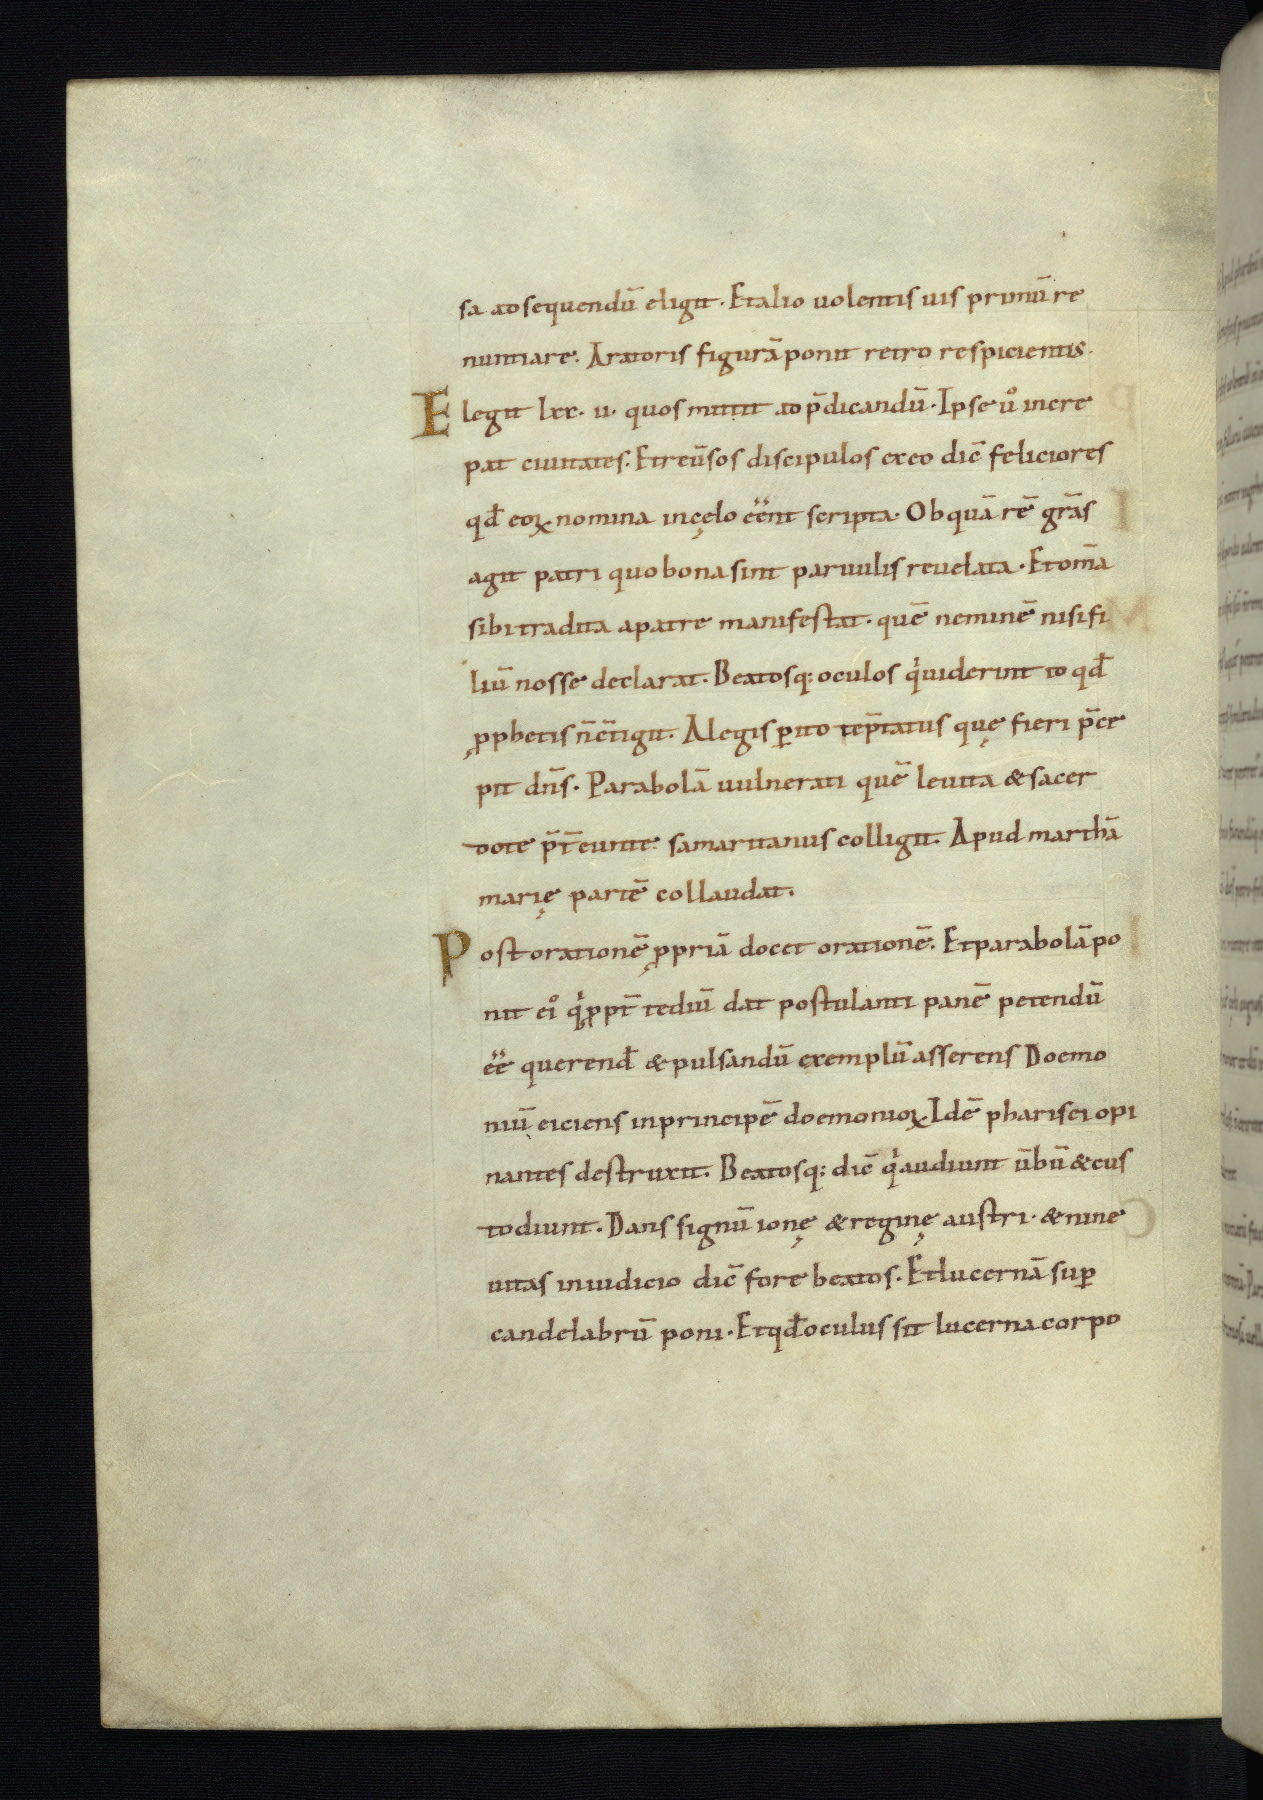 sa ad sequendū eligit. Et alio uolentis uis primū re
nuntiare. Aratoris figurā ponit retro respicientis.
Elegit lxx. u. quos mittit ad p̄dicandū. Ipse uͦ incre
pat ciuitates. Et reūsos discipulos ex eo dic̄ feliciores
qđ eoꝝ nomina in cęlo eēnt scripta. Ob quā rē gr̄as
agit patri quo bona sint paruulis reuelata. Et om̄a
sibi tradita a patre manifestat. quē neminē nisi fi
liū nosse declarat. Beatosq: oculos qͥ uiderint id qđ
ꝓphetis n̄ c̄tigit. A legis ꝑito tēptatus quę fieri p̄ce
pit dn̄s. Parabolā uulnerati quē leuita & sacer
dote p̄t̄eunte samaritanus colligit. Apud marthā
marię partē collaudat.
Post orationē ꝓpriā docet orationē. Et parabolā po
nit eiͦ qͥ ꝓpt̄ tediū dat postulanti panē petendū
eē querend̄ & pulsandū exemplū asserens Doemo
niū eiciens in principē doemonioꝝ Idē pharisei opi
nantes destruxit. Beatosq: dic̄ qͥ audiunt ūbū & cus
todiunt. Dans signū ionę & reginę austri. & nine
uitas in iudicio dic̄ fore beatos. Et lucernā suꝑ
candelabrū poni. Et qđ oculus sit lucerna corpo